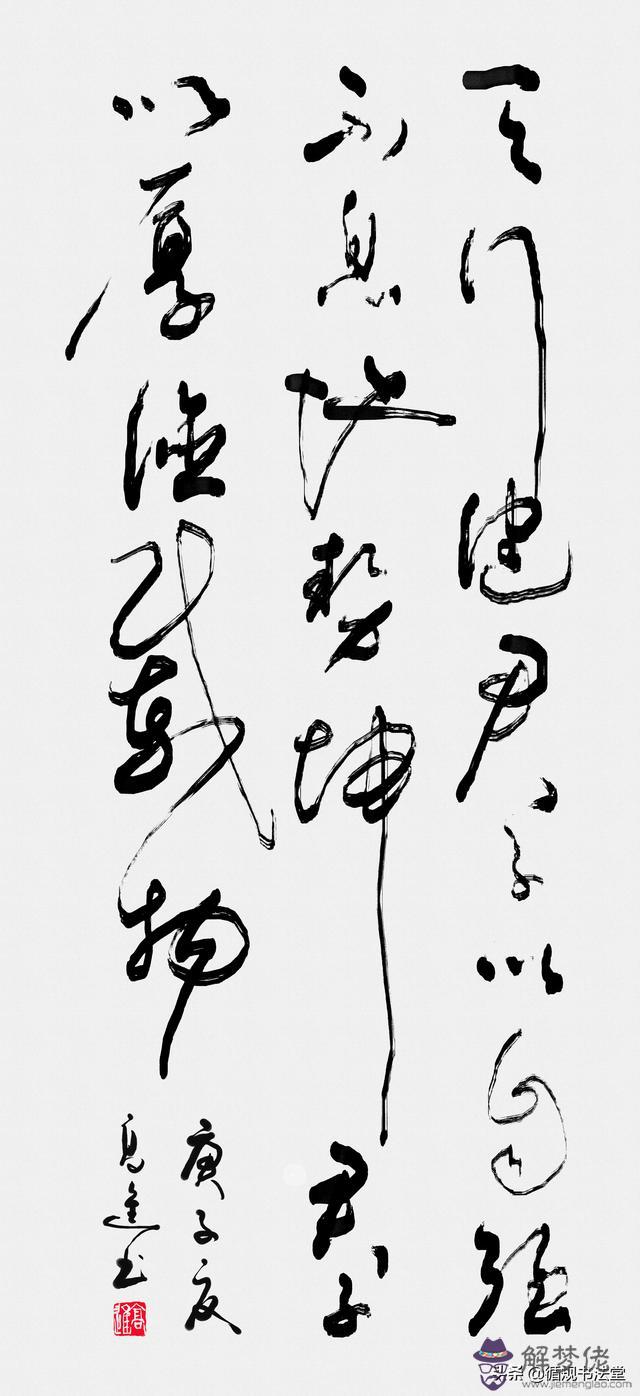 天行健君子以自强
不息地势坤君子
以厚德载物
庚子夏
高進书
高進
解梦佬
www.jiemenglao.com
头条 @循规书法堂